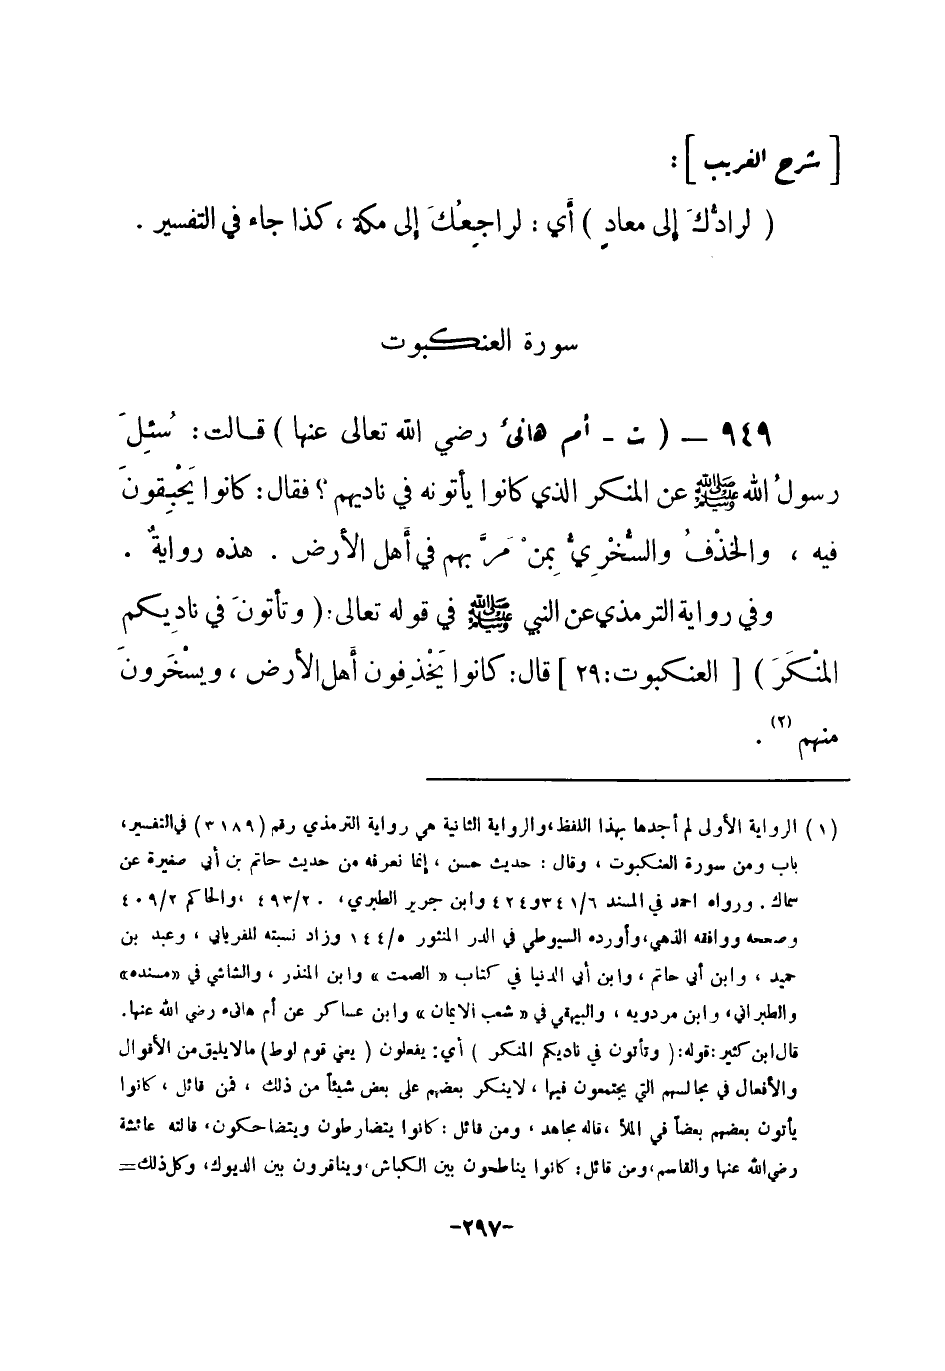 [ شرح الغريب ] :
( لرادُّكَ إلى معادٍ ) أي : لراجِعُكَ إلى مكة ، كذا جاء في التفسير .
سورة العنكبوت
٩٤٩ — ( ت - أم هانىء رضي الله تعالى عنها ) قالت : سُئِلَ
رسولُ الله ﷺ عن المنكر الذي كانوا يأتونه في ناديهم ؟ فقال : كانوا يَحْبِقونَ
فيه ، والخذْفُ والسُّخْرِيُّ بِمنْ مَرَّ بهم في أهل الأرض . هذه روايةٌ .
وفي رواية الترمذي عن النبي ﷺ في قوله تعالى : ( وتأتونَ في نادِيكم
المنْكَرَ ) [ العنكبوت : ٢٩ ] قال : كانوا يَخْذِفون أهل الأرض ، ويسْخَرونَ
منهم (٢) .
(١) الرواية الأولى لم أجدها بهذا اللفظ، والرواية الثانية هي رواية الترمذي رقم (٣١٨٩) في التفسير،
باب ومن سورة العنكبوت ، وقال : حديث حسن ، إنما نعرفه من حديث حاتم بن أبي صغيرة عن
سماك . ورواه احمد في المسند ٣٤١/٦ و٤٢٤ وابن جرير الطبري، ٩٣/٢٠، والحاكم ٤٠٩/٢
وصححه ووافقه الذهبي، وأورده السيوطي في الدر المنثور ١٤٤/٥ وزاد نسبته للفريابي ، وعبد بن
حميد ، وابن أبي حاتم ، وابن أبي الدنيا في كتاب « الصمت » وابن المنذر ، والشاشي في «مسنده»
والطبراني، وابن مردويه ، والبيهقي في « شعب الايمان » وابن عساكر عن أم هانىء رضي الله عنها.
قال ابن كثير : قوله : ( وتأتون في ناديكم المنكر ) أي : يفعلون ( يعني قوم لوط ) مالا يليق من الأقوال
والأفعال في مجالسهم التي يجتمعون فيها ، لاينكر بعضهم على بعض شيئاً من ذلك ، فمن قائل ، كانوا
يأتون بعضهم بعضاً في الملأ ، قاله مجاهد ، ومن قائل : كانوا يتضارطون ويتضاحكون، قالته عائشة
رضي الله عنها والقاسم، ومن قائل : كانوا يناطحون بين الكباش، ويناقرون بين الديوك، وكل ذلك =
-٢٩٧-